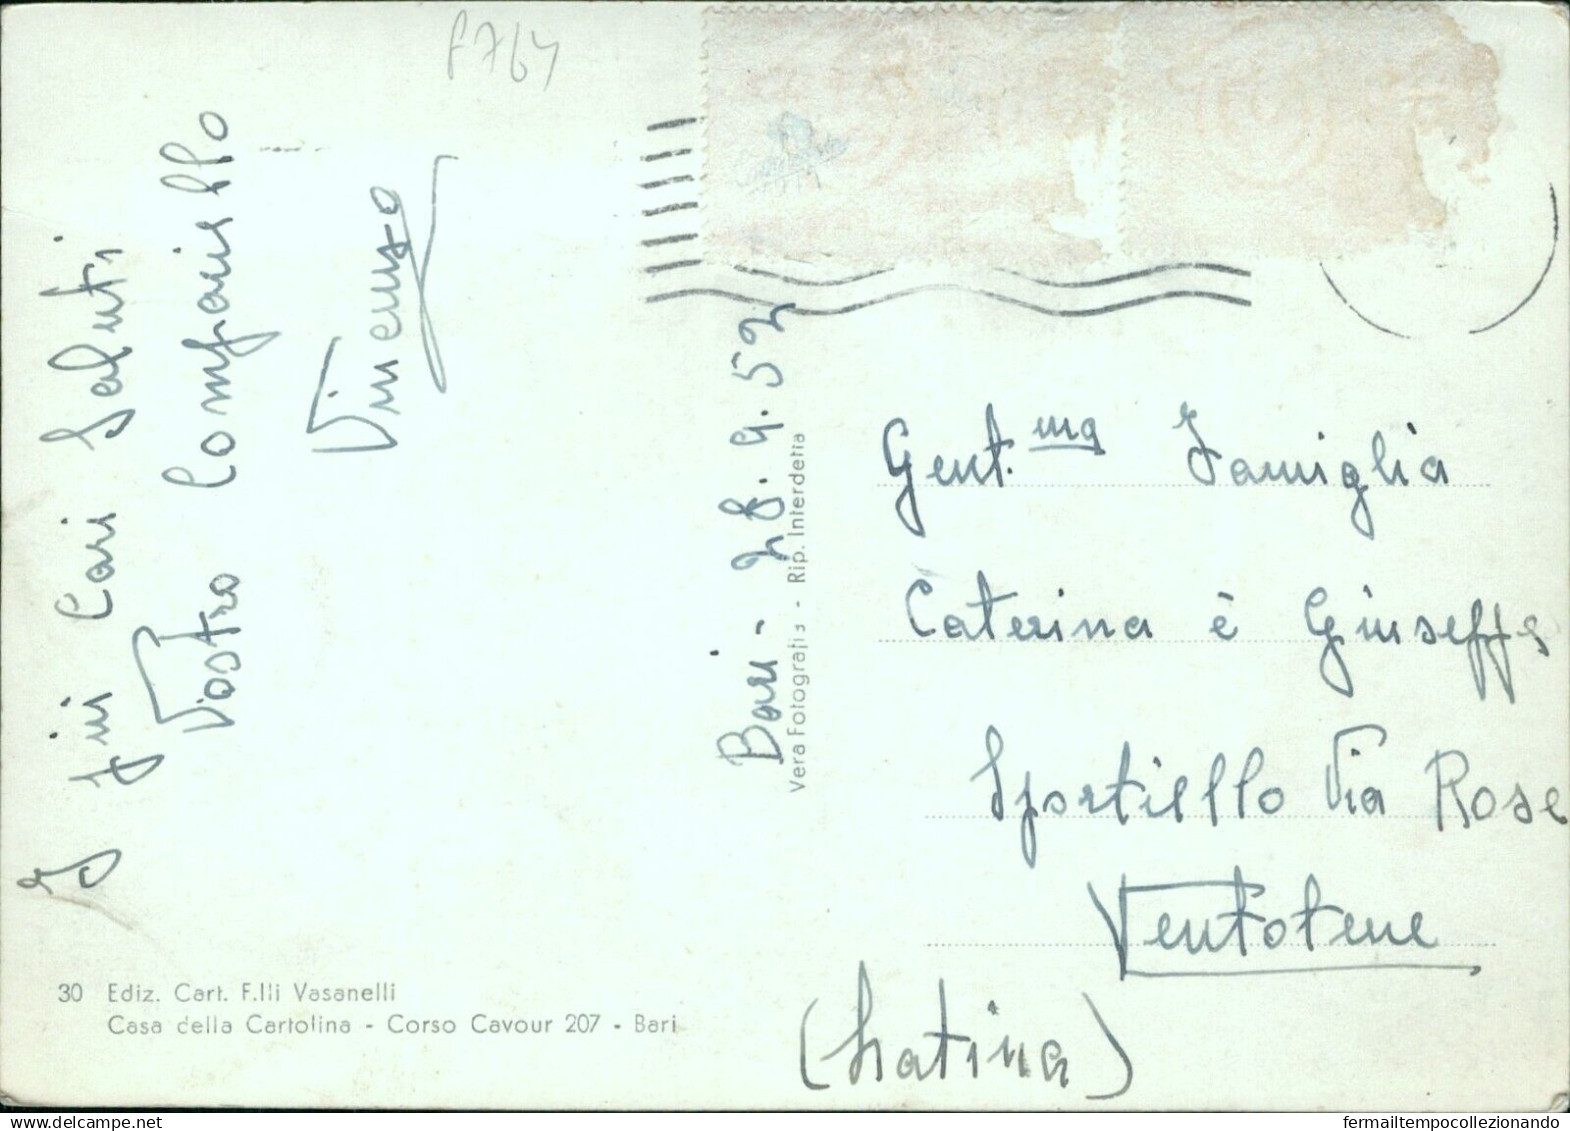 F764
I più Cari Saluti
Vostro Compariello
Vincenzo
Bari - 28.9.52
Vera Fotografia - Rip. Interdetta
Gent.ma Famiglia
Caterina è Giuseppe
Sportiello Via Rose
Ventotene
(Latina)
30 Ediz. Cart. F.lli Vasanelli
Casa della Cartolina - Corso Cavour 207 - Bari
fermailtempocollezionando